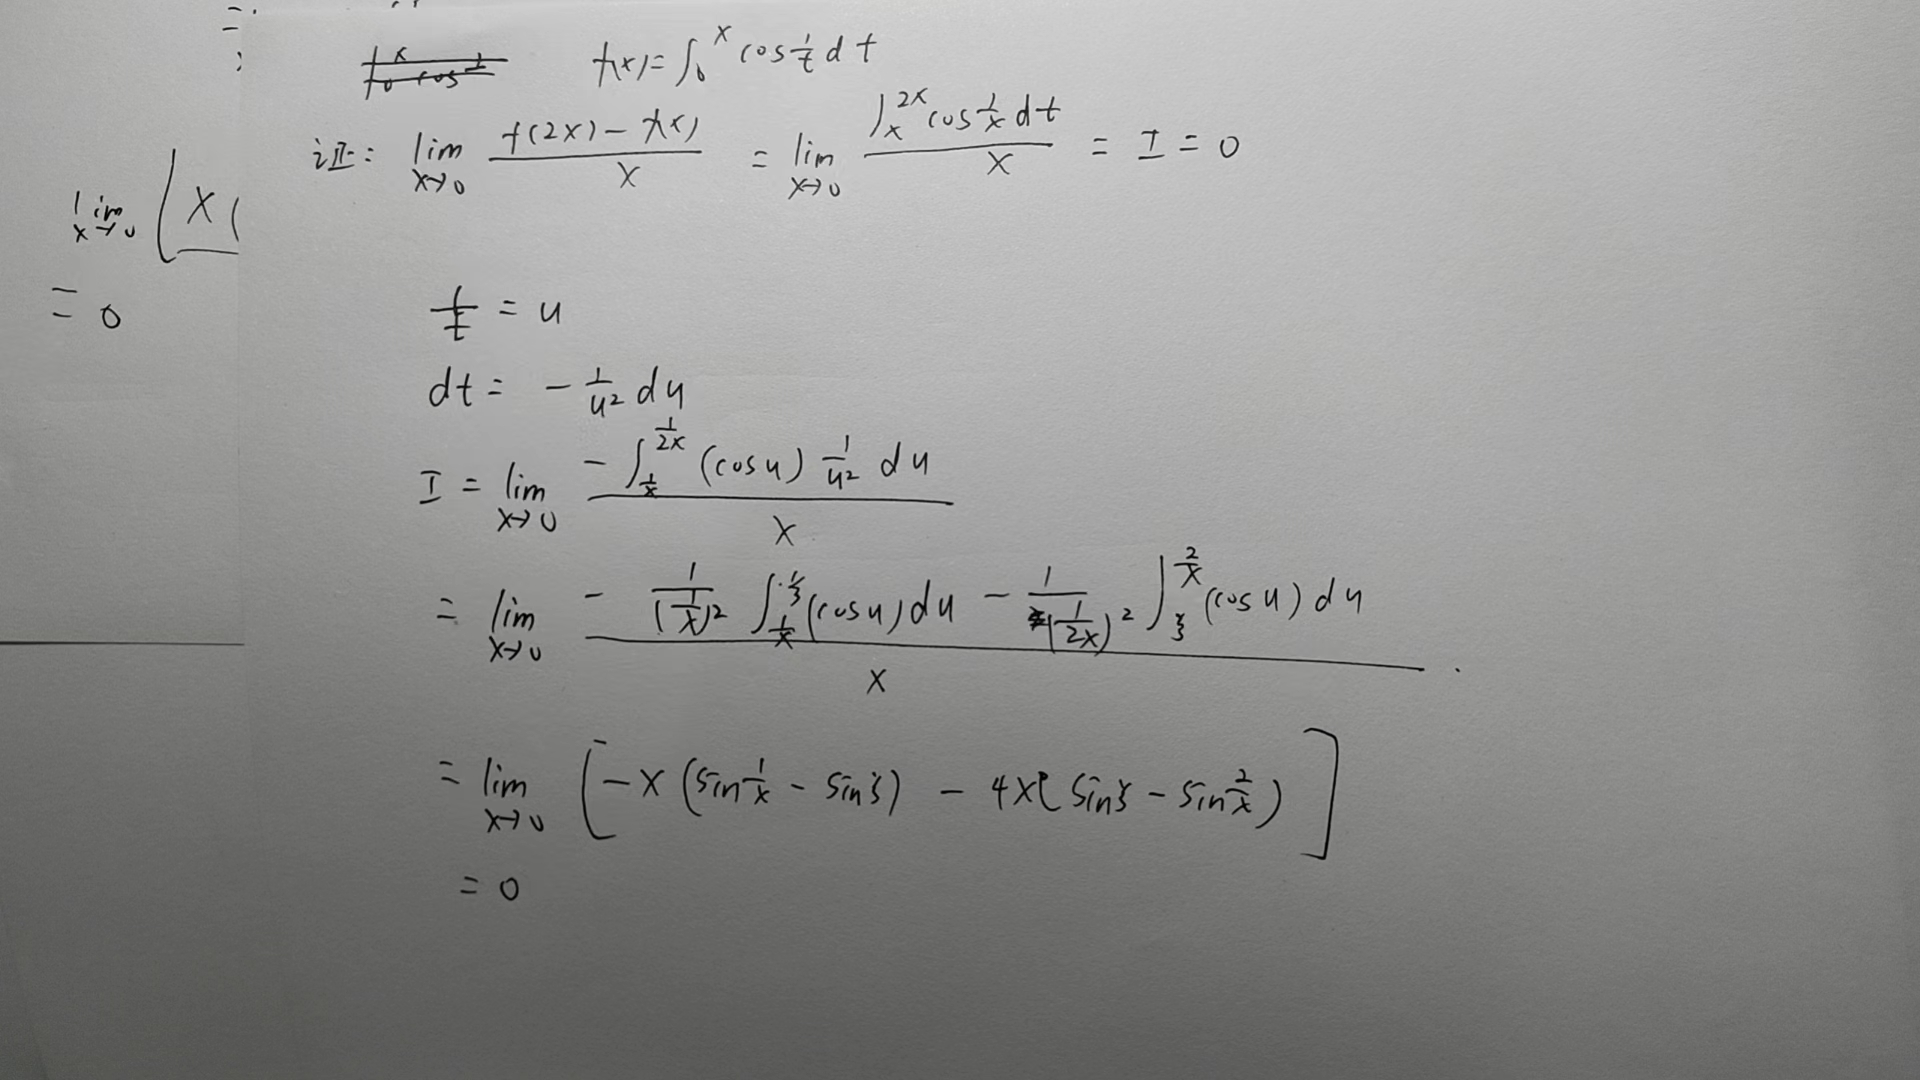 f(x) = ∫_0^x cos 1/t dt
证: lim_{x→0} (f(2x) - f(x))/x = lim_{x→0} (∫_x^{2x} cos 1/x dt)/x = I = 0
lim_{x→0} [x (
= 0
1/t = u
dt = - 1/u² du
I = lim_{x→0} (- ∫_{1/x}^{1/2x} (cos u) 1/u² du)/x
= lim_{x→0} (- 1/(1/x)² ∫_{1/x}^{ξ} (cos u) du - 1/(1/2x)² ∫_ξ^{2/x} (cos u) du)/x
= lim_{x→0} [-x (sin 1/x - sin ξ) - 4x (sin ξ - sin 2/x)]
= 0